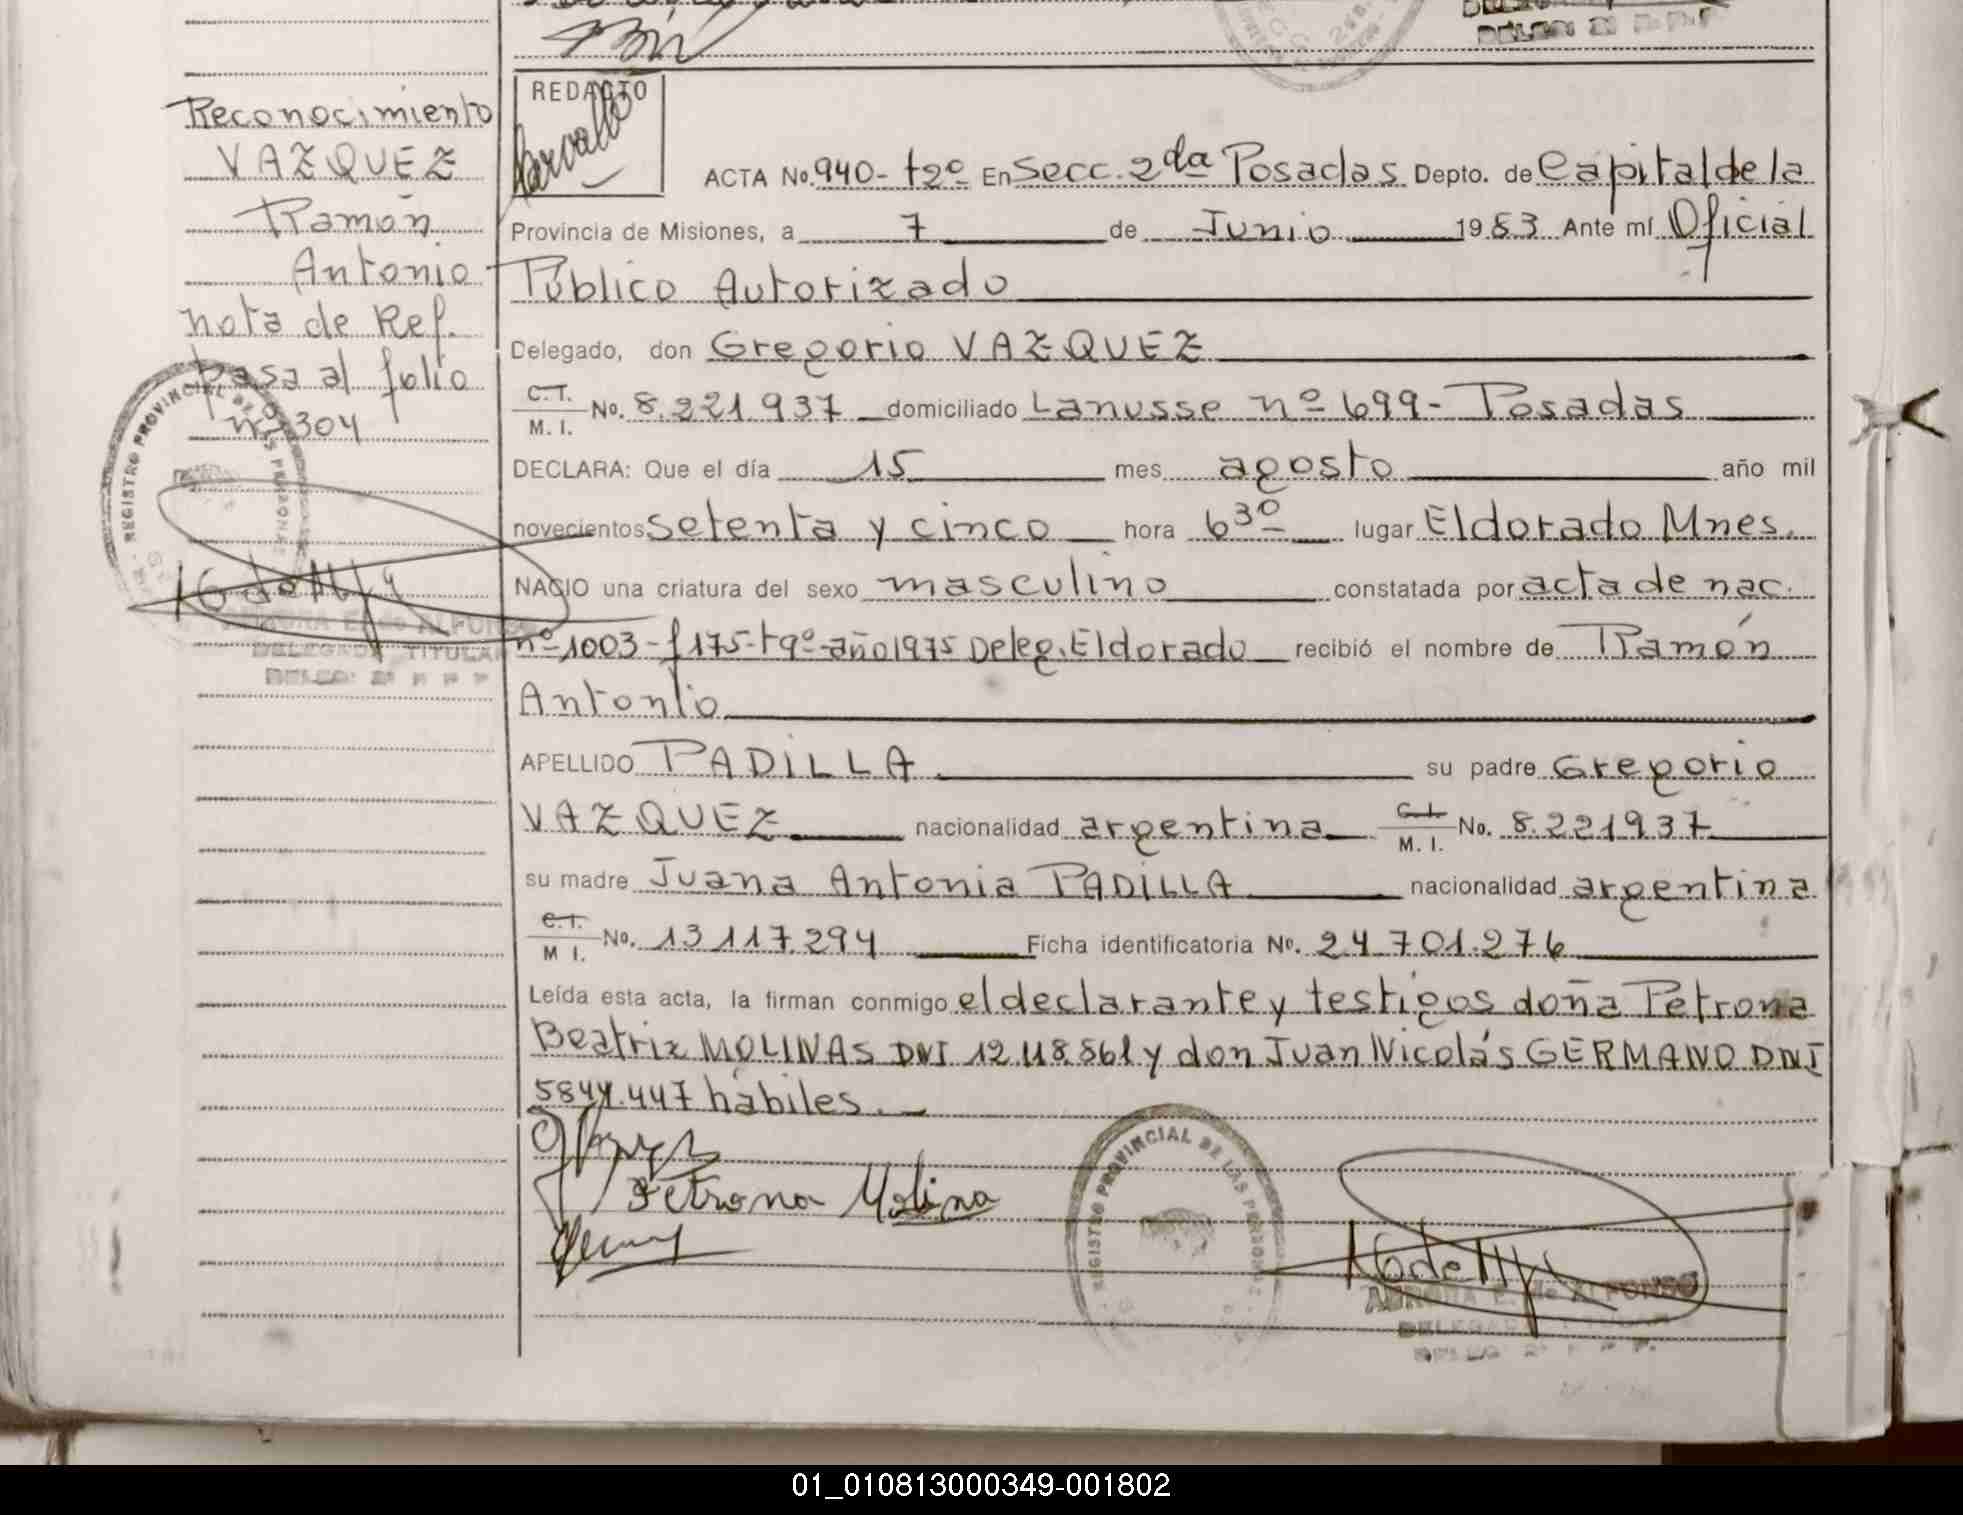 Reconocimiento
VAZQUEZ
Ramón
Antonio
nota de Ref.
pasa al folio
nº 304
REGISTRO PROVINCIAL DE LAS PERSONAS
AURORA E. de ALFONSO
DELEGADA TITULAR
REDACTO
ACTA No. 940- t2º En Secc. 2da Posadas Depto. de Capital de la
Provincia de Misiones, a 7 de Junio 1983 Ante mí Oficial
Público Autorizado
Delegado, don Gregorio VAZQUEZ
C.I. M. I. No. 8.221.937 domiciliado Lanusse nº 699- Posadas
DECLARA: Que el día 15 mes agosto año mil
novecientos setenta y cinco hora 6 30 lugar Eldorado Mnes.
NACIO una criatura del sexo masculino constatada por acta de nac.
nº 1003- f 175- t 9º- año 1975 Deleg. Eldorado recibió el nombre de Ramón
Antonio
APELLIDO PADILLA su padre Gregorio
VAZQUEZ nacionalidad argentina C.I. M. I. No. 8.221937
su madre Juana Antonia PADILLA nacionalidad argentina
C.I. M I. No. 13 117.294 Ficha identificatoria No. 24.701.276
Leída esta acta, la firman conmigo el declarante y testigos doña Petrona
Beatriz MOLINAS DNI 12.118.561 y don Juan Nicolás GERMANO DNI
5844.447 hábiles.
Petrona Molina
REGISTRO PROVINCIAL DE LAS PERSONAS
AURORA E. de ALFONSO
01_010813000349-001802